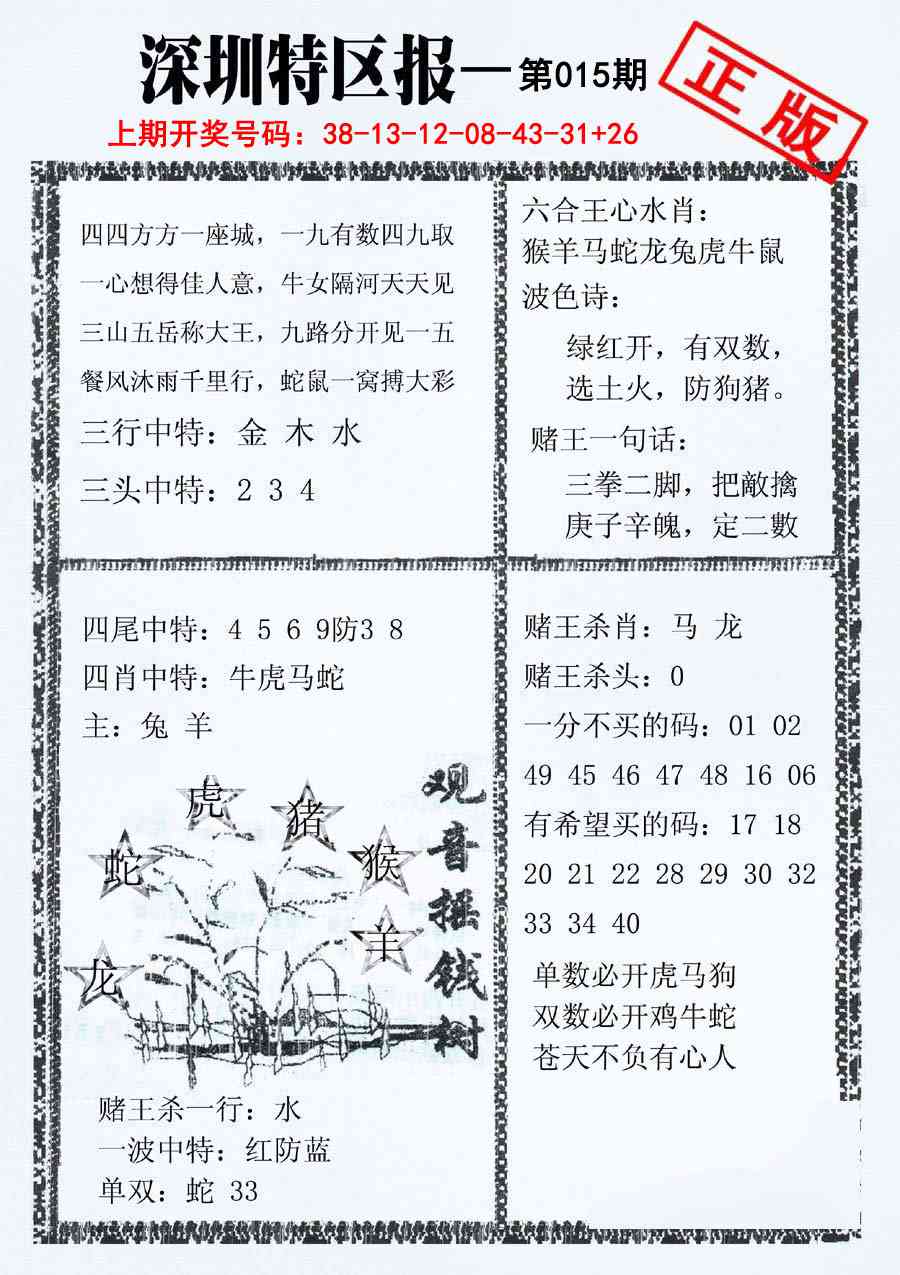 深圳特区报—第015期
正版
上期开奖号码：38-13-12-08-43-31+26
四四方方一座城，一九有数四九取
一心想得佳人意，牛女隔河天天见
三山五岳称大王，九路分开见一五
餐风沐雨千里行，蛇鼠一窝搏大彩
三行中特：金 木 水
三头中特：2 3 4
六合王心水肖：
猴羊马蛇龙兔虎牛鼠
波色诗：
绿红开，有双数，
选土火，防狗猪。
赌王一句话：
三拳二脚，把敵擒
庚子辛魄，定二數
四尾中特：4 5 6 9防3 8
四肖中特：牛虎马蛇
主：兔 羊
虎
猪
蛇
猴
羊
龙
观音摇钱树
赌王杀一行：水
一波中特：红防蓝
单双：蛇 33
赌王杀肖：马 龙
赌王杀头：0
一分不买的码：01 02
49 45 46 47 48 16 06
有希望买的码：17 18
20 21 22 28 29 30 32
33 34 40
单数必开虎马狗
双数必开鸡牛蛇
苍天不负有心人